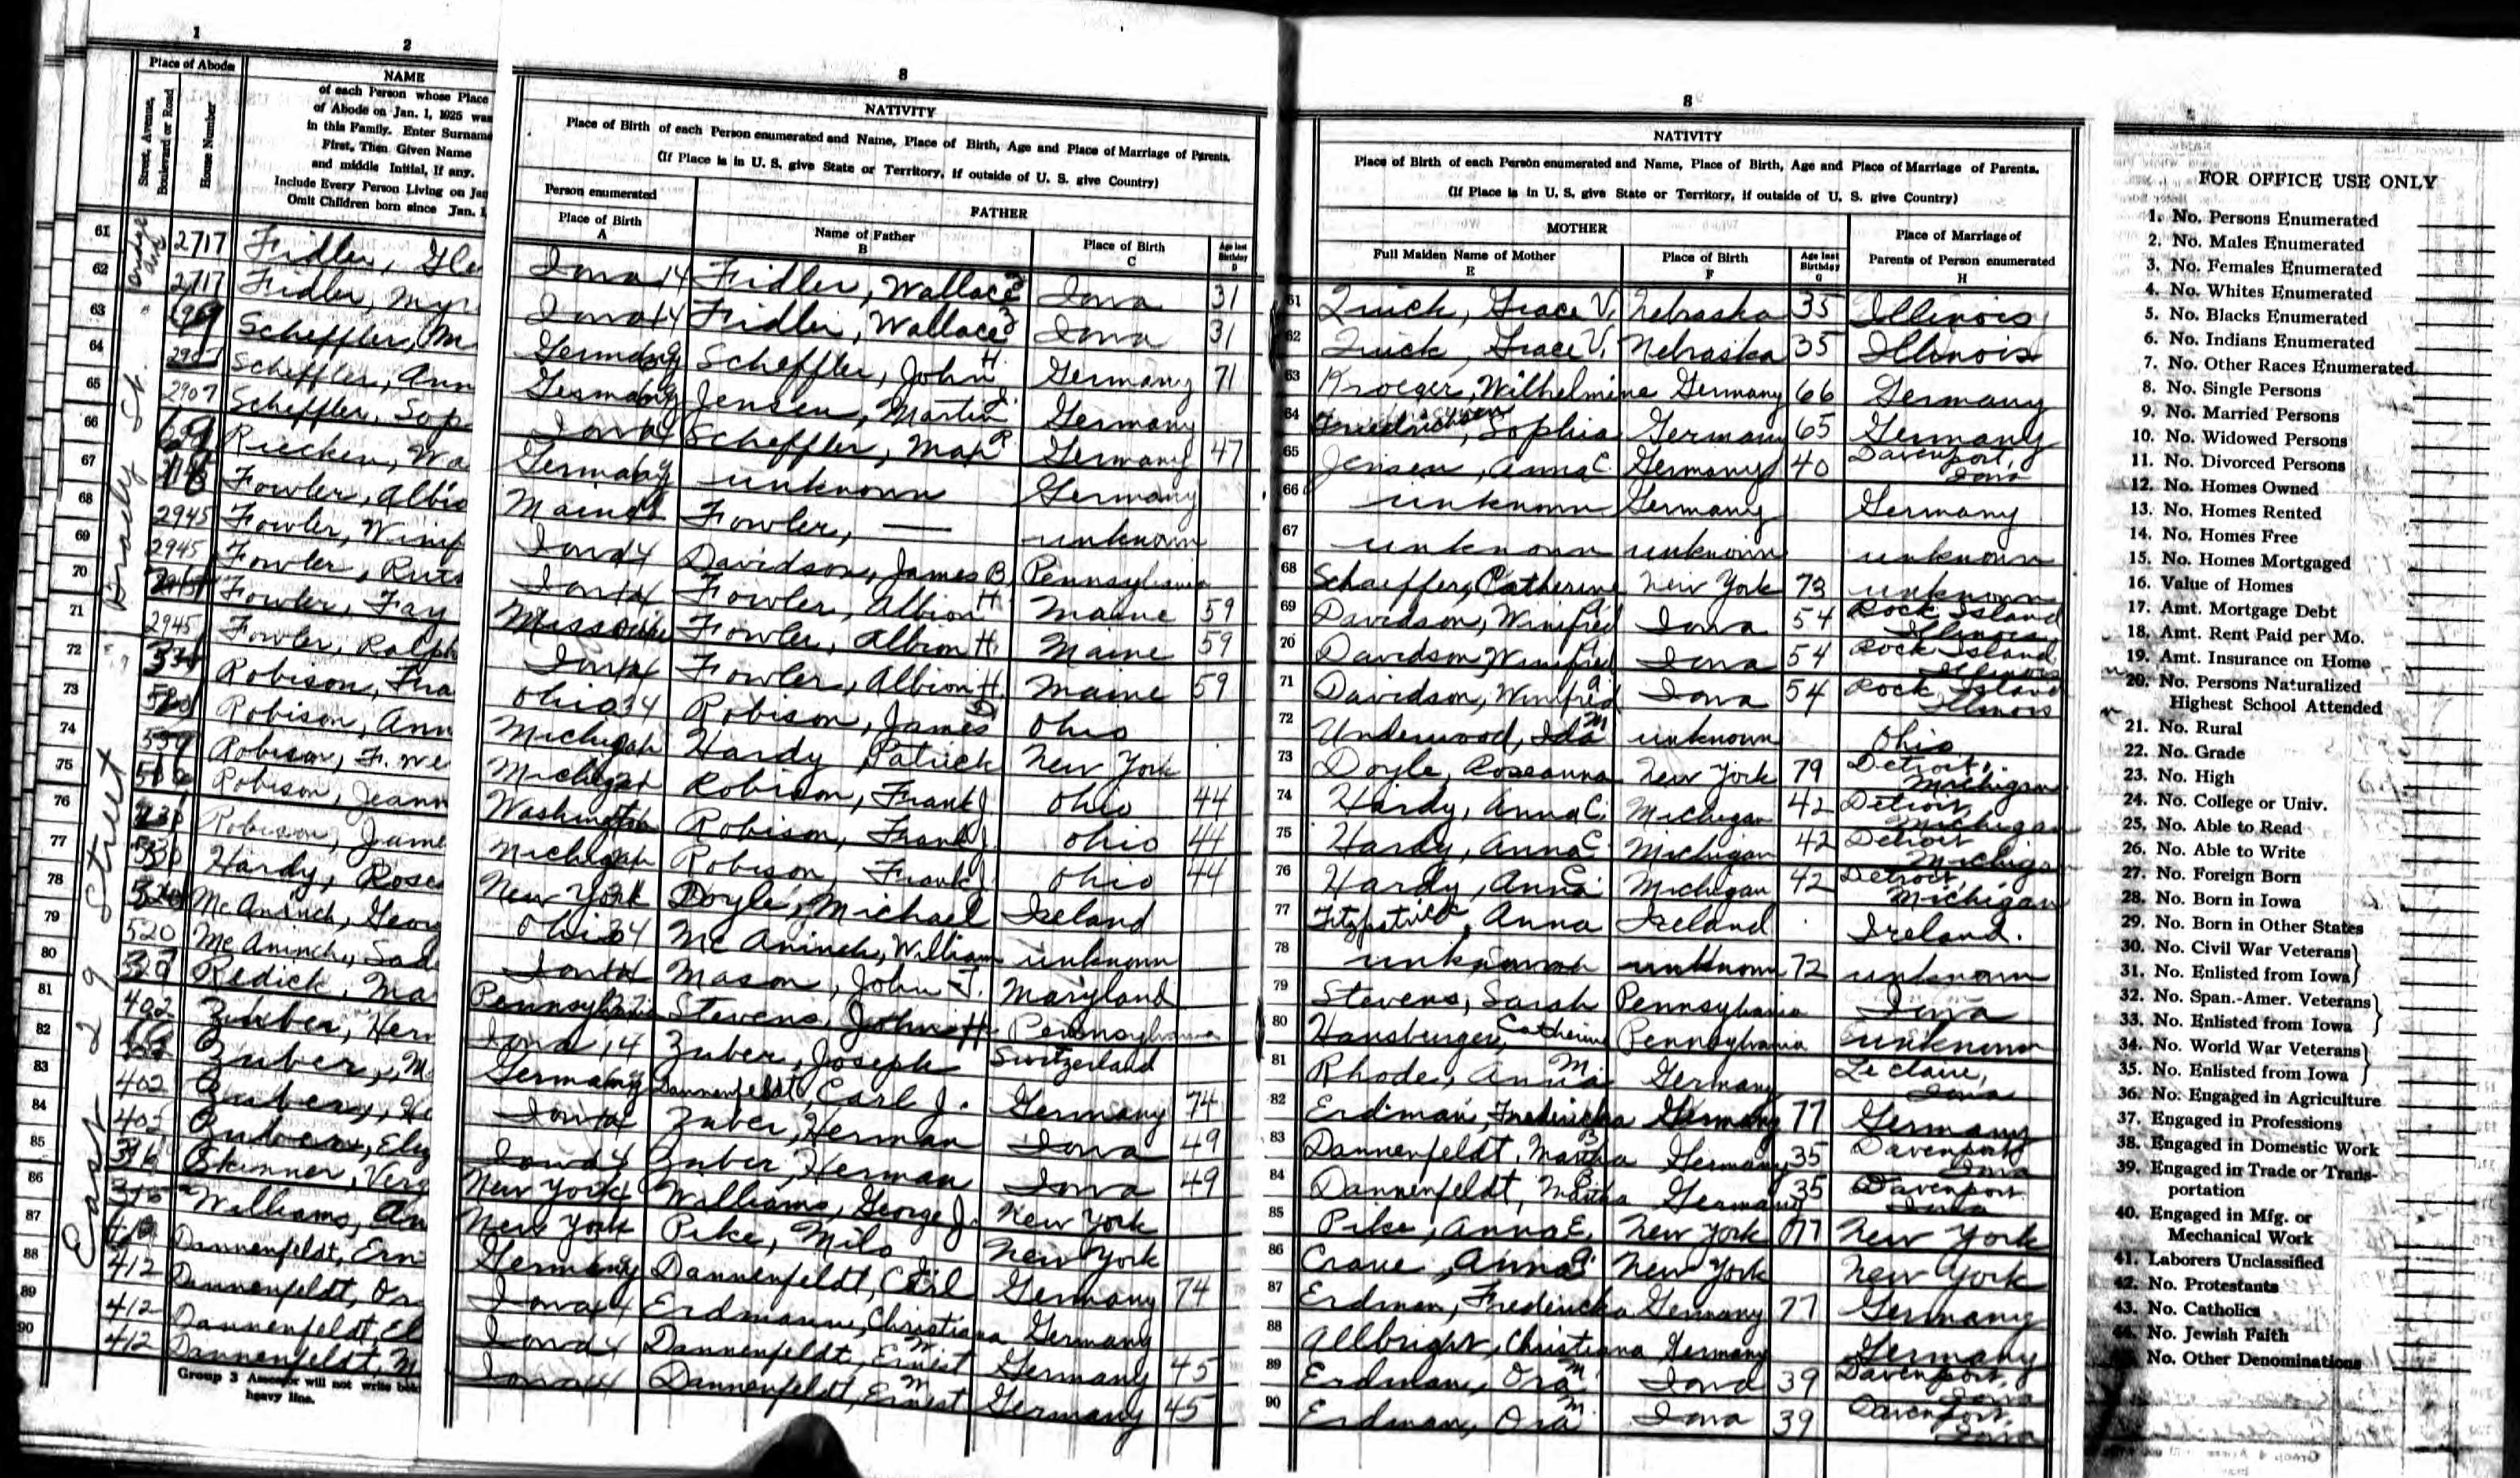 1
2
Place of Abode
Street, Avenue, Boulevard or Road
House Number
NAME
of each Person whose Place
of Abode on Jan. 1, 1925 was
in this Family. Enter Surname
First, Then Given Name
and middle Initial, If any.
Include Every Person Living on Jan
Omit Children born since Jan. 1
8
NATIVITY
Place of Birth of each Person enumerated and Name, Place of Birth, Age and Place of Marriage of Parents.
(If Place is in U. S. give State or Territory, if outside of U. S. give Country)
Person enumerated
Place of Birth
A
FATHER
Name of Father
B
Place of Birth
C
Age last Birthday
D
8
NATIVITY
Place of Birth of each Person enumerated and Name, Place of Birth, Age and Place of Marriage of Parents.
(If Place is in U. S. give State or Territory, if outside of U. S. give Country)
MOTHER
Full Maiden Name of Mother
E
Place of Birth
F
Age last Birthday
G
Place of Marriage of
Parents of Person enumerated
H
Brady St.
East 29 Street
61 2717 Fidler, Gle Iowa 14 Fidler, Wallace Iowa 31 61 Quick, Grace V. Nebraska 35 Illinois
62 2717 Fidler, Myr Iowa 14 Fidler, Wallace Iowa 31 62 Quick, Grace V. Nebraska 35 Illinois
63 Scheffler, M Germany Scheffler, John H. Germany 71 63 Kroeger, Wilhelmine Germany 66 Germany
64 2907 Scheffler, Ann Germany Jensen, Martin J. Germany 64 Friedrichsen, Sophia Germany 65 Germany
65 2907 Scheffler, Sop Iowa Scheffler, Max R Germany 47 65 Jensen, Anna C. Germany 40 Davenport, Iowa
66 Riecken, Wa Germany unknown Germany 66 unknown Germany Germany
67 Fowler, Albio Maine Fowler, — unknown 67 unknown unknown unknown
68 2945 Fowler, Winif Iowa 14 Davidson, James B. Pennsylvania 68 Schaeffer, Catherine New York 73 unknown
69 2945 Fowler, Ruth Iowa 14 Fowler, Albion H. Maine 59 69 Davidson, Winifred A. Iowa 54 Rock Island Illinois
70 2945 Fowler, Fay Missouri Fowler, Albion H. Maine 59 70 Davidson, Winifred A. Iowa 54 Rock Island Illinois
71 2945 Fowler, Ralph Iowa 14 Fowler, Albion H. Maine 59 71 Davidson, Winifred A. Iowa 54 Rock Island Illinois
72 Robison, Fra Ohio 34 Robison, James D Ohio 72 Underwood, Ida M unknown Ohio
73 Robison, Ann Michigan Hardy Patrick New York 73 Doyle, Roseanna New York 79 Detroit, Michigan
74 Robison, F. We Michigan Robison, Frank J. Ohio 44 74 Hardy, Anna C. Michigan 42 Detroit, Michigan
75 Robison, Jeann Washington Robison, Frank J. Ohio 44 75 Hardy, Anna C. Michigan 42 Detroit Michigan
76 Robison, Jame Michigan Robison, Frank J. Ohio 44 76 Hardy, Anna C. Michigan 42 Detroit, Michigan
77 Hardy, Rose New York Doyle, Michael Ireland 77 Fitzpatrick, Anna Ireland Ireland.
78 520 McAninch, Georg Ohio 34 McAninch, William unknown 78 unknown unknown 72 unknown
79 520 McAninch, Sad Iowa 14 Mason, John J. Maryland 79 Stevens, Sarah Pennsylvania Iowa
80 Redick, Ma Pennsylvania Stevens, John H. Pennsylvania 80 Hansburger, Catherine Pennsylvania unknown
81 402 Zuber, Her Iowa 14 Zuber, Joseph Switzerland 81 Rhode, Anna M. Germany Le Claire, Iowa
82 Zuber, M Germany Dannenfeldt, Carl J. Germany 74 82 Erdman, Fredericka Germany 77 Germany
83 402 Zuber, He Iowa 14 Zuber, Herman Iowa 49 83 Dannenfeldt, Martha B. Germany 35 Davenport Iowa
84 402 Zuber, Eliz Iowa 14 Zuber, Herman Iowa 49 84 Dannenfeldt, Martha B. Germany 35 Davenport Iowa
85 Skinner, Verg New York Williams, George J. New York 85 Pike, Anna E. New York 77 New York
86 Williams, An New York Pike, Milo New York 86 Crane, Anna New York New York
87 Dannenfeldt, Ern Germany Dannenfeldt, Carl J. Germany 74 87 Erdman, Fredericka Germany 77 Germany
88 412 Dannenfeldt, Or Iowa 14 Erdmann, Christiana Germany 88 Allbright, Christiana Germany Germany
89 412 Dannenfeldt, El Iowa 14 Dannenfeldt, Ernest W Germany 45 89 Erdman, Ora M. Iowa 39 Davenport, Iowa
90 412 Dannenfeldt, M Iowa 14 Dannenfeldt, Ernest W Germany 45 90 Erdman, Ora M. Iowa 39 Davenport, Iowa
Group 3 Assessor will not write below
heavy line.
FOR OFFICE USE ONLY
1. No. Persons Enumerated
2. No. Males Enumerated
3. No. Females Enumerated
4. No. Whites Enumerated
5. No. Blacks Enumerated
6. No. Indians Enumerated
7. No. Other Races Enumerated
8. No. Single Persons
9. No. Married Persons
10. No. Widowed Persons
11. No. Divorced Persons
12. No. Homes Owned
13. No. Homes Rented
14. No. Homes Free
15. No. Homes Mortgaged
16. Value of Homes
17. Amt. Mortgage Debt
18. Amt. Rent Paid per Mo.
19. Amt. Insurance on Home
20. No. Persons Naturalized
Highest School Attended
21. No. Rural
22. No. Grade
23. No. High
24. No. College or Univ.
25. No. Able to Read
26. No. Able to Write
27. No. Foreign Born
28. No. Born in Iowa
29. No. Born in Other States
30. No. Civil War Veterans
31. No. Enlisted from Iowa
32. No. Span.-Amer. Veterans
33. No. Enlisted from Iowa
34. No. World War Veterans
35. No. Enlisted from Iowa
36. No. Engaged in Agriculture
37. Engaged in Professions
38. Engaged in Domestic Work
39. Engaged in Trade or Trans-
portation
40. Engaged in Mfg. or
Mechanical Work
41. Laborers Unclassified
42. No. Protestants
43. No. Catholics
44. No. Jewish Faith
No. Other Denominations